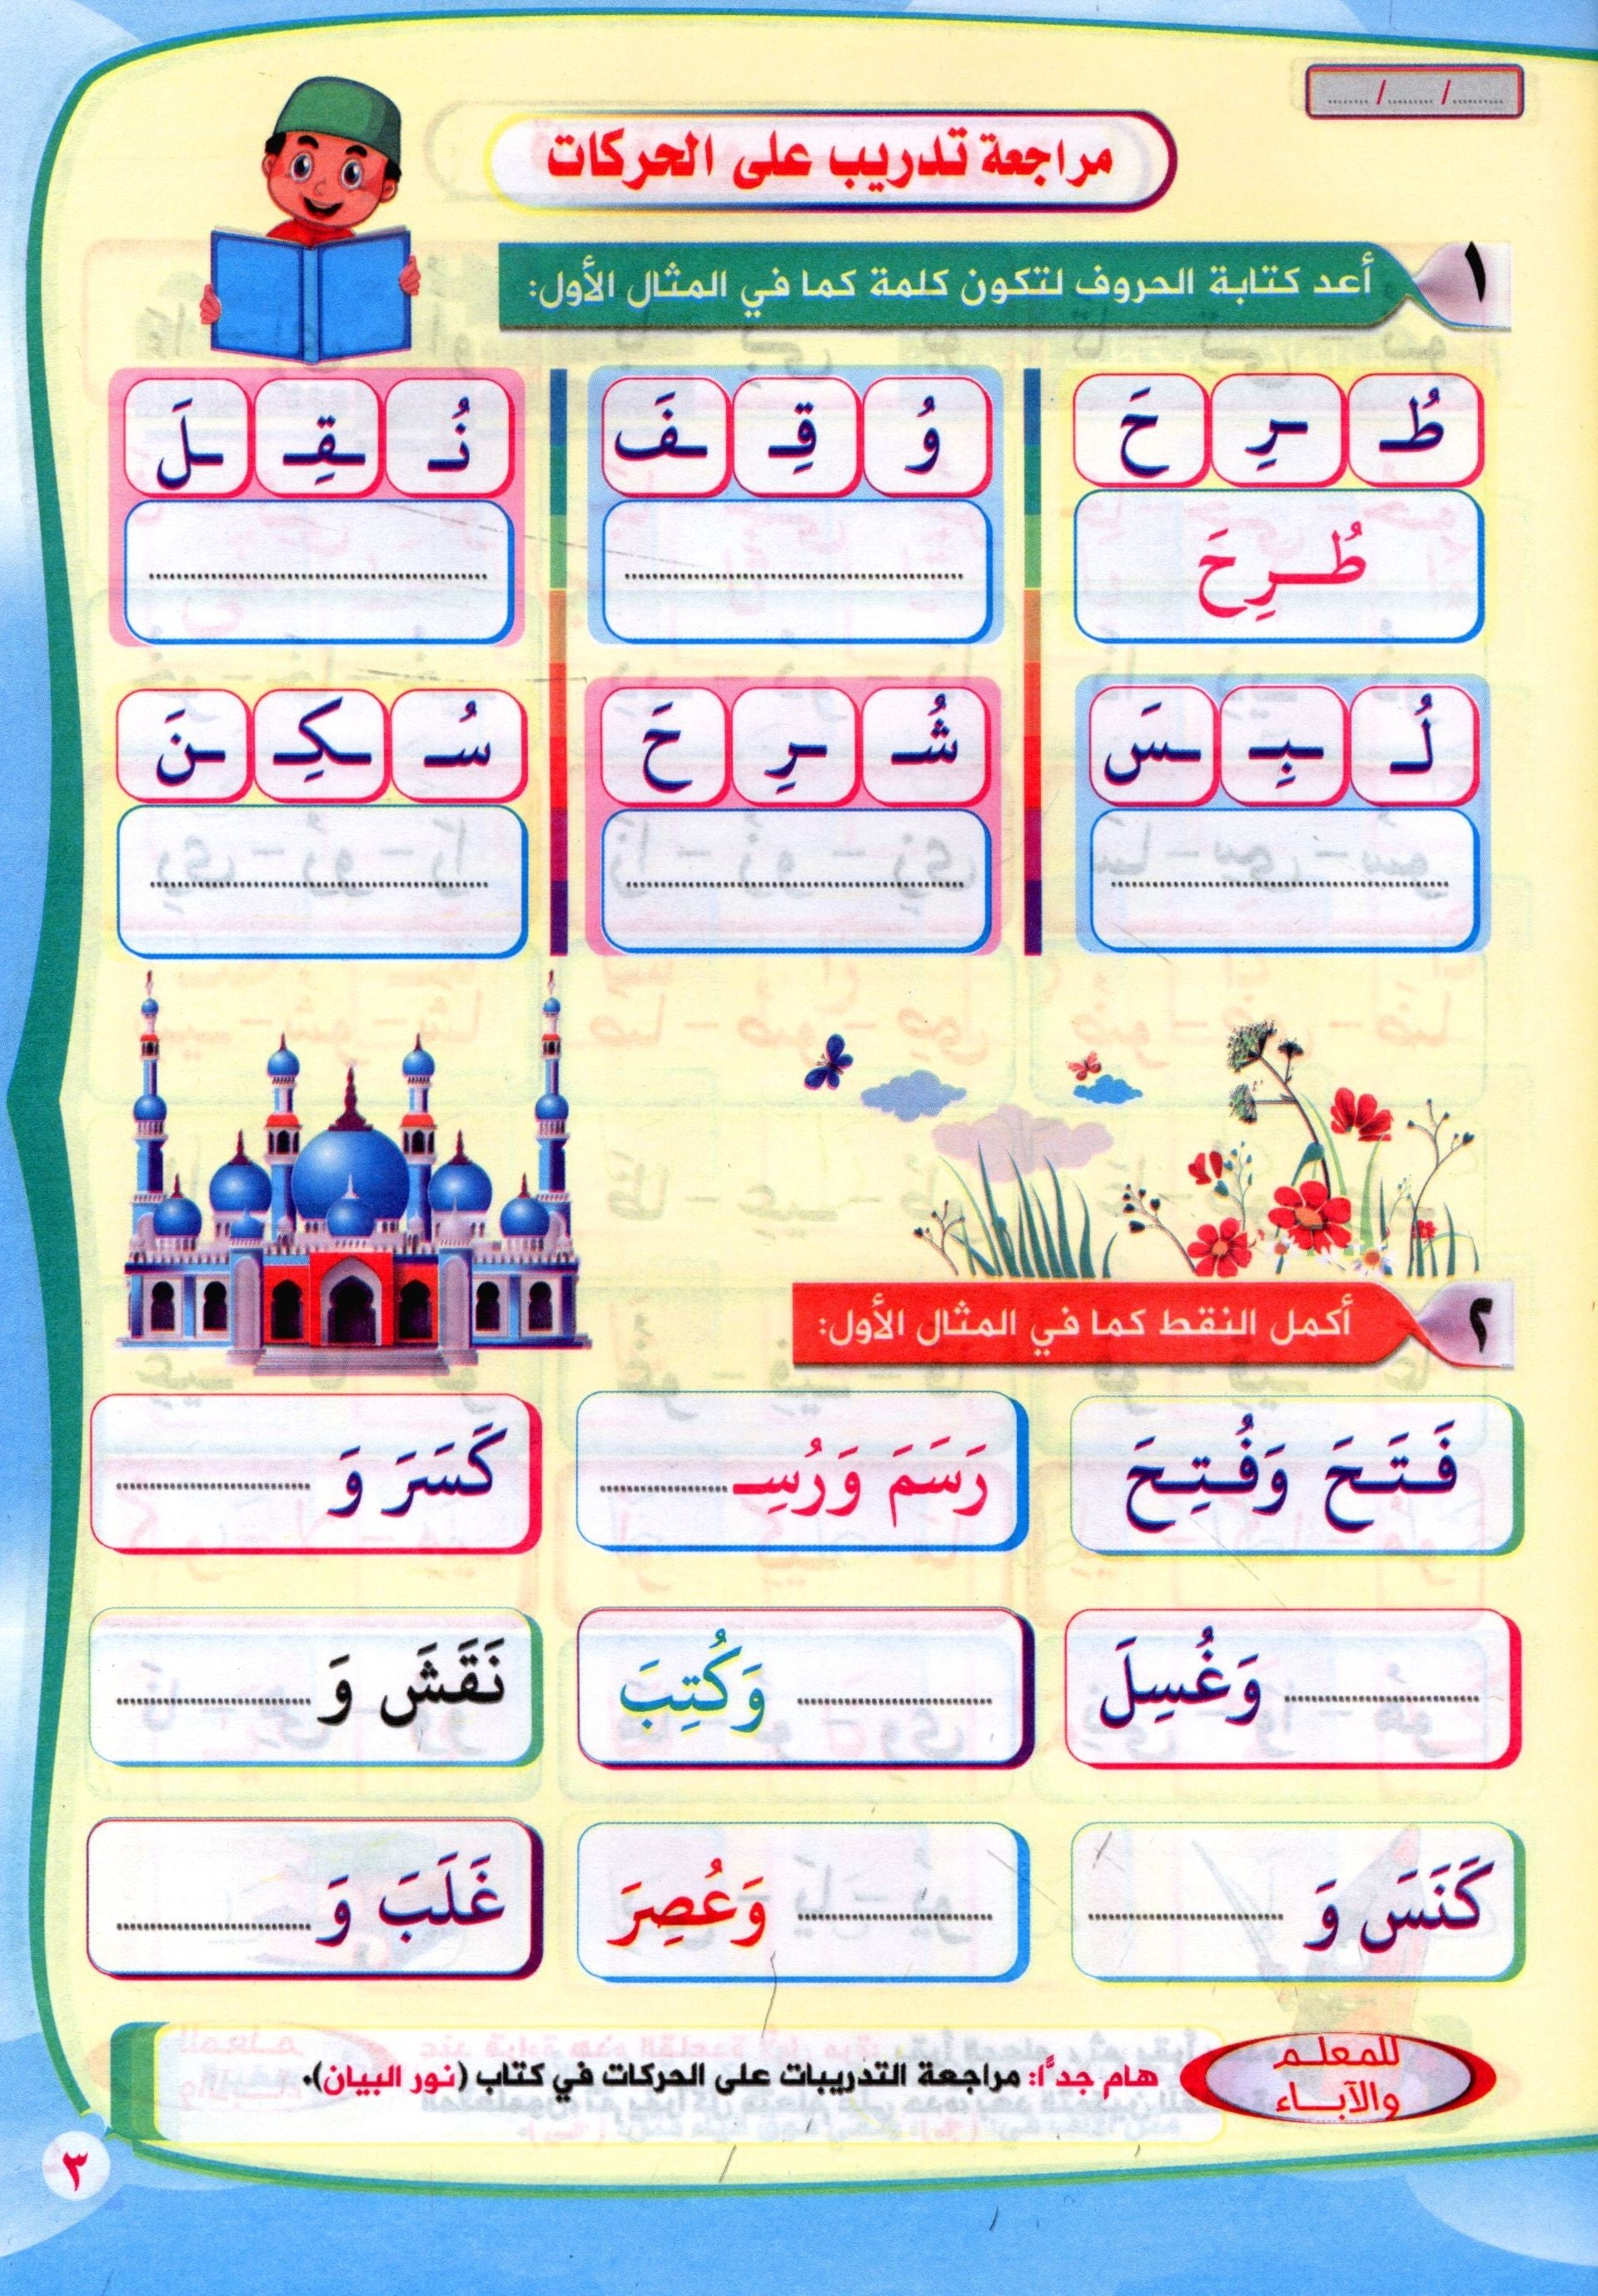 ....... / ....... / .......
مراجعة تدريب على الحركات
١ أعد كتابة الحروف لتكون كلمة كما في المثال الأول:
طُـ ـرِ حَ
وُ قِـ ـفَ
نُـ ـقِـ ـلَ
طُـرِحَ
لُـ ـبِـ ـسَ
شُـ ـرِ حَ
سُـ ـكِـ ـنَ
٢ أكمل النقط كما في المثال الأول:
فَـتَـحَ وَفُـتِـحَ
رَسَمَ وَرُسِـ..........
كَسَرَ وَ ..........
.......... وَغُسِلَ
.......... وَكُتِبَ
نَقَشَ وَ ..........
كَنَسَ وَ ..........
.......... وَعُصِرَ
غَلَبَ وَ ..........
للمعلـم
والآبـاء
هام جدًّا: مراجعة التدريبات على الحركات في كتاب (نور البيان).
٣